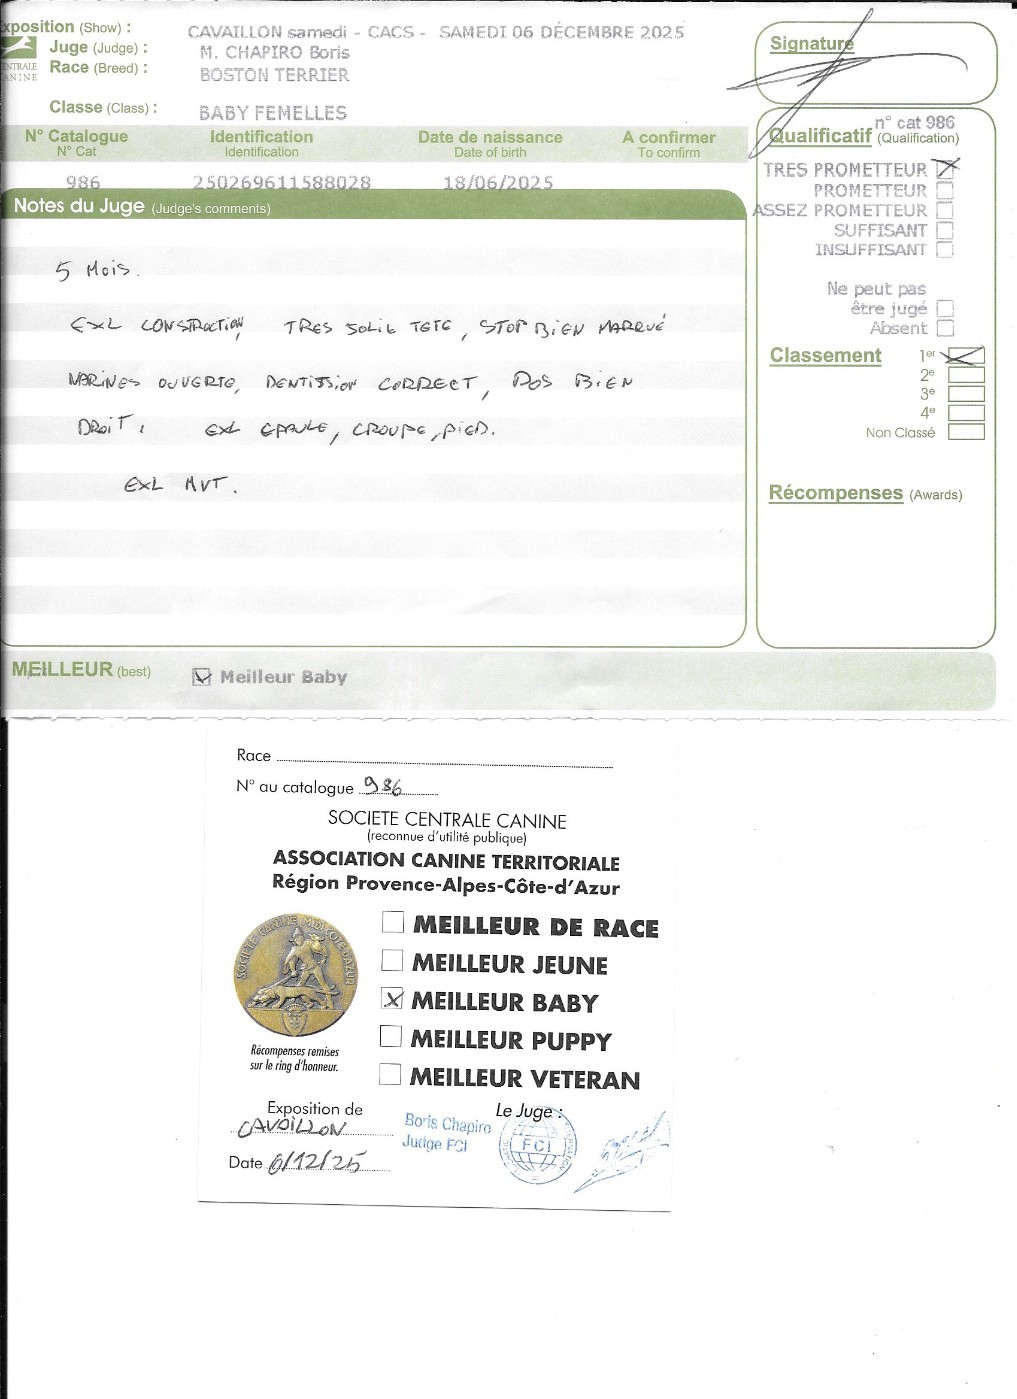 xposition (Show) : CAVAILLON samedi - CACS - SAMEDI 06 DÉCEMBRE 2025
Juge (Judge) : M. CHAPIRO Boris
Race (Breed) : BOSTON TERRIER
NTRALE
ANINE
Classe (Class) : BABY FEMELLES
N° Catalogue Identification Date de naissance A confirmer
N° Cat Identification Date of birth To confirm
986 250269611588028 18/06/2025
Notes du Juge (Judge's comments)
5 Mois.
EXL CONSTRUCTION, TRES SOLIE TETE, STOP BIEN MARQUÉ
NARINES OUVERTE, DENTISSION CORRECT, DOS BIEN
DROIT. EXL EPAULE, CROUPE, PIED.
EXL MVT.
Signature
n° cat 986
Qualificatif (Qualification)
TRES PROMETTEUR
PROMETTEUR
ASSEZ PROMETTEUR
SUFFISANT
INSUFFISANT
Ne peut pas
être jugé
Absent
Classement 1er
2e
3e
4e
Non Classé
Récompenses (Awards)
MEILLEUR (best) Meilleur Baby
Race
N° au catalogue 986
SOCIETE CENTRALE CANINE
(reconnue d'utilité publique)
ASSOCIATION CANINE TERRITORIALE
Région Provence-Alpes-Côte-d'Azur
SOCIÉTÉ CANINE MIDI CÔTE-D'AZUR
MEILLEUR DE RACE
MEILLEUR JEUNE
MEILLEUR BABY
MEILLEUR PUPPY
MEILLEUR VETERAN
Récompenses remises
sur le ring d'honneur.
Exposition de
CAVAILLON
Date 6/12/25
Le Juge :
Boris Chapiro
Judge FCI
FCI